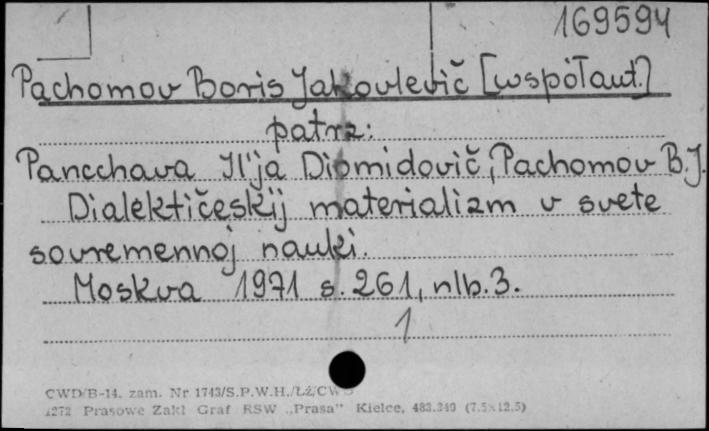 169594
Pachomov Boris Jakovlevič [współaut.]
patrz:
Pancchava Il'ja Diomidovič, Pachomov B.J.
Dialektičeskij materializm v svete
sovremennoj nauki.
Moskva 1971 s. 261, nlb. 3.
1
CWD/B-14. zam. Nr 1743/S.P.W.H./ŁŻ/CWD
1272 Prasowe Zakł Graf RSW „Prasa" Kielce, 483.340 (7.5×12.5)